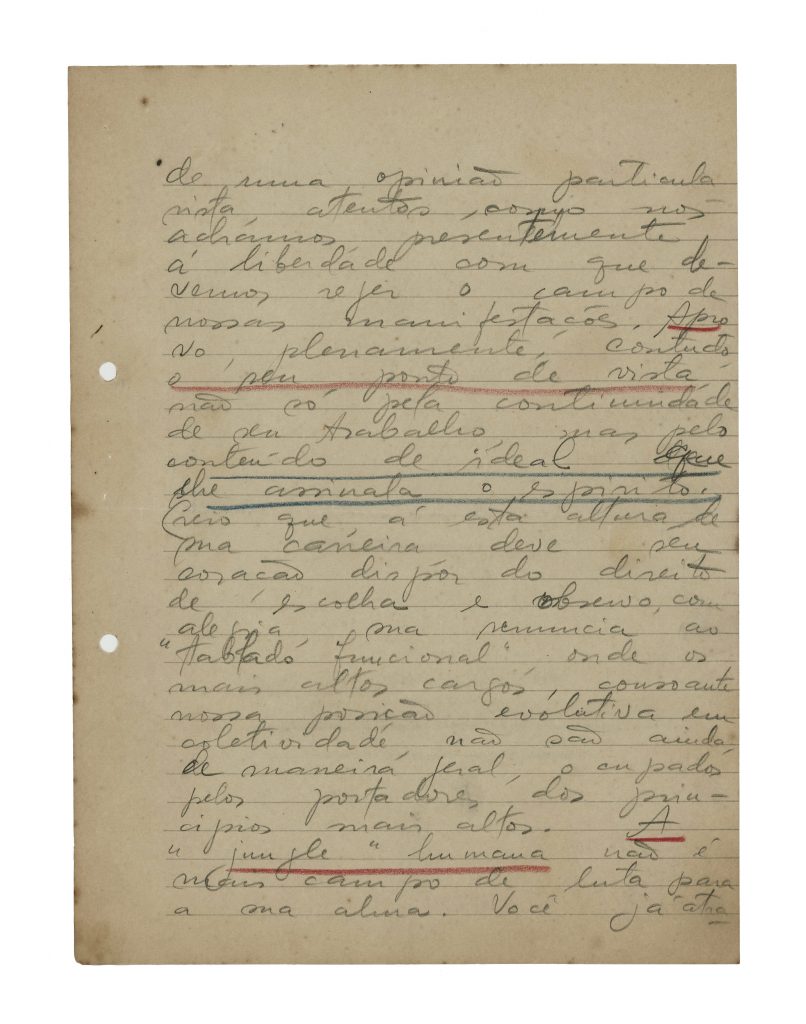 de uma opinião particula
rista atentos, como nós
achámos presentemente
á liberdade com que de-
vemos rejer o campo de
nossas manifestações. Apro
vo, plenamente, contudo
o seu ponto de vista
não só pela continuidade
de seu trabalho mas pelo
conteúdo de ideal que
lhe assinala o espirito.
Creio que, á esta altura de
sua carreira deve seu
coração dispôr do direito
de escolha e observo, com
alegria, sua renuncia ao
"tablado funcional" onde os
mais altos cargos, consoante
nossa posição evolutiva em
coletividade, não são ainda,
de maneira jeral, ocupados
pelos portadores dos prin-
cipios mais altos. A
"jungle" humana não é
mais campo de luta para
a sua alma. Você já atra